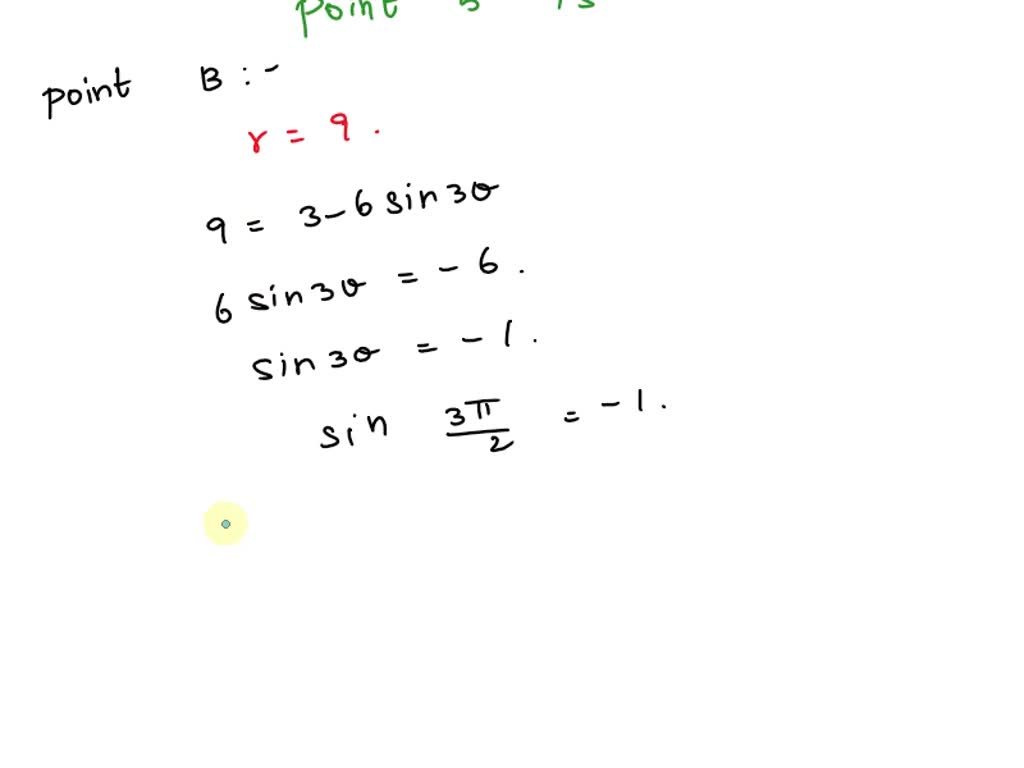 point
point B :-
r = 9 .
9 = 3 - 6 sin 3θ
6 sin 3θ = - 6 .
sin 3θ = - 1 .
sin 3π/2 = - 1 .